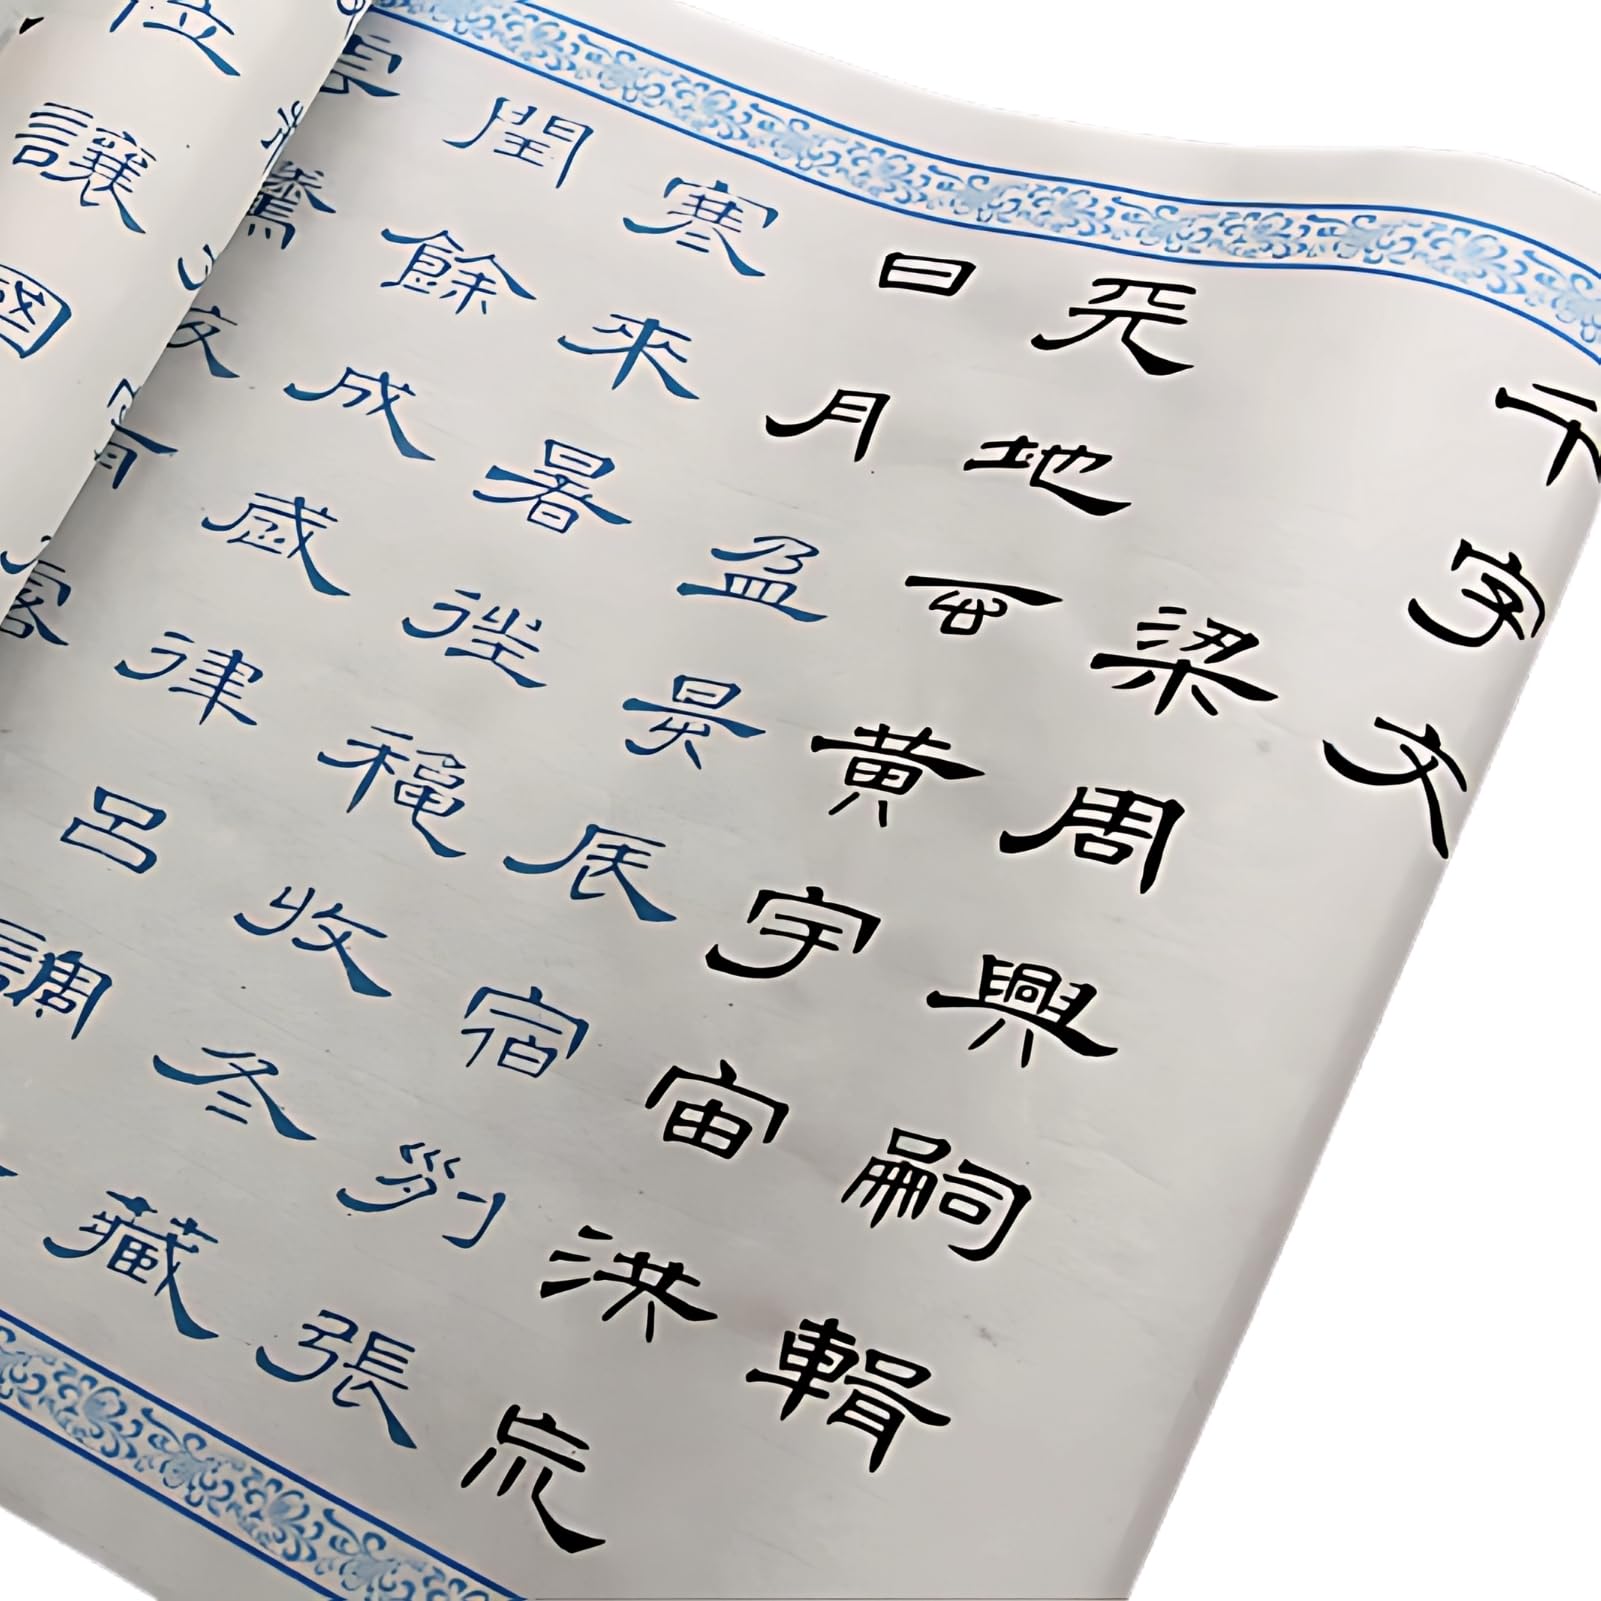 千字文
梁周興嗣輯
天地玄黄宇宙洪荒
日月盈昃辰宿列張
寒來暑往穐收冬藏
閏餘成歲律呂調
雲騰
位讓國